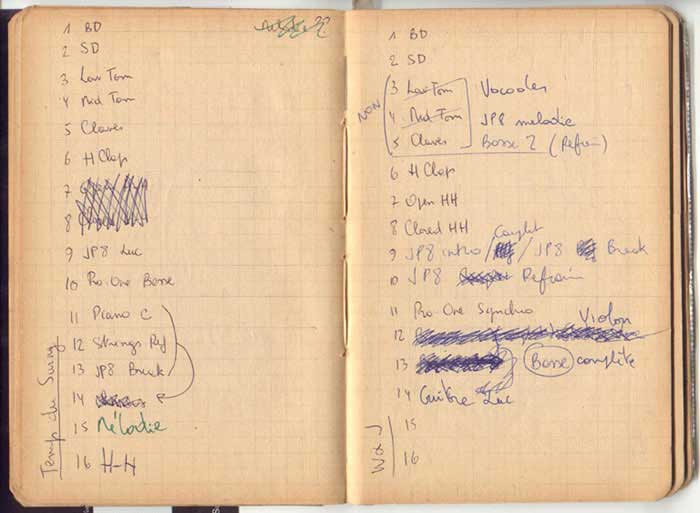 1 BD
2 SD
3 Low Tom
4 Mid Tom
5 Claves
6 H Clap
7
8
9 JP8 Luc
10 Pro-One Basse
11 Piano C
12 Strings Ref
13 JP8 Break
14
15 Mélodie
16 H-H
Temp du Swing
1 BD
2 SD
3 Low Tom Vocoder
4 Mid Tom JP8 melodic
5 Claves Basse 2 (Refrain)
NON
6 H Clap
7 Open HH
8 Closed HH
Couplet
9 JP8 intro / / JP8 Break
10 JP8 Refrain
11 Pro One Synchro
12 Violon
13 Basse complète
14 Guitare Luc
15
16
W&J